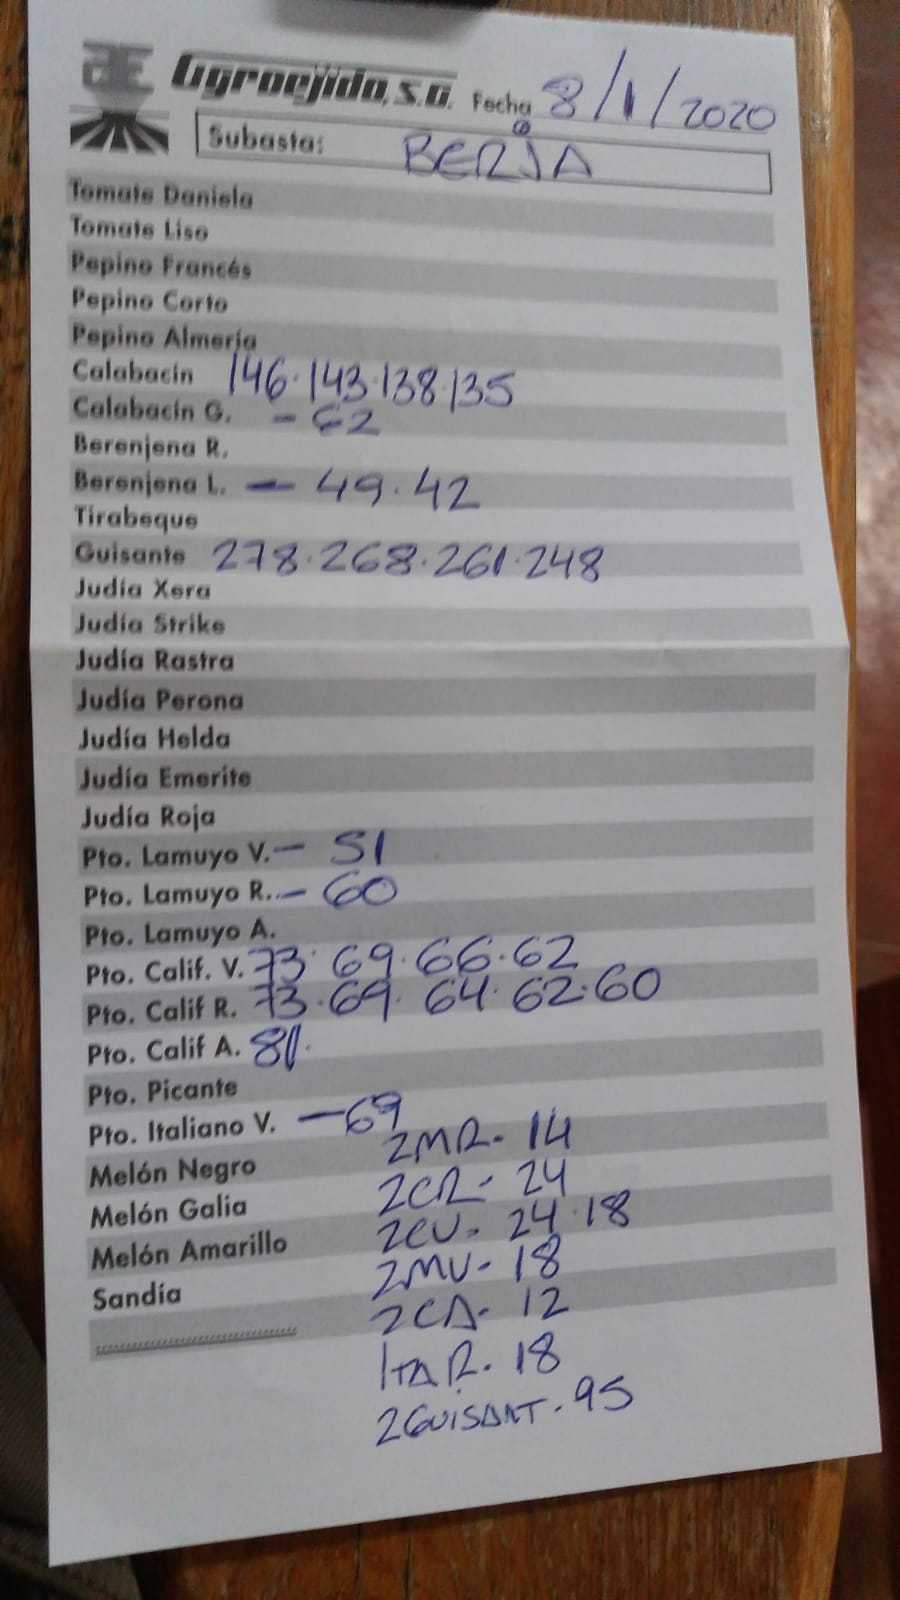 Agroejido, S.A. Fecha 8/1/2020
Subasta: BERJA
Tomate Daniela
Tomate Liso
Pepino Francés
Pepino Corto
Pepino Almería
Calabacín 146.143.138 135
Calabacín G. - 62
Berenjena R.
Berenjena L. - 49.42
Tirabeque
Guisante 278.268.261.248
Judía Xera
Judía Strike
Judía Rastra
Judía Perona
Judía Helda
Judía Emerite
Judía Roja
Pto. Lamuyo V. - 51
Pto. Lamuyo R. - 60
Pto. Lamuyo A.
Pto. Calif. V. 73. 69.66.62
Pto. Calif R. 73.69. 64. 62.60
Pto. Calif A. 81.
Pto. Picante
Pto. Italiano V. - 69
2MR- 14
Melón Negro
2CR- 24
Melón Galia
2CV- 24.18
Melón Amarillo
2MV- 18
Sandía
2CA- 12
ITAR. 18
2GUISANT. 95